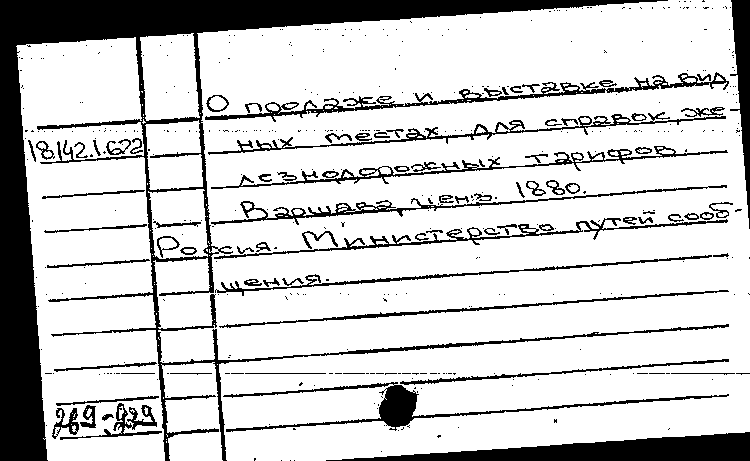 О продаже и выставке на вид-
18.142.1.622 ных местах, для справок, же-
лезнодорожных тарифов.
Варшава, ценз. 1880.
Россия. Министерство путей сооб-
щения.